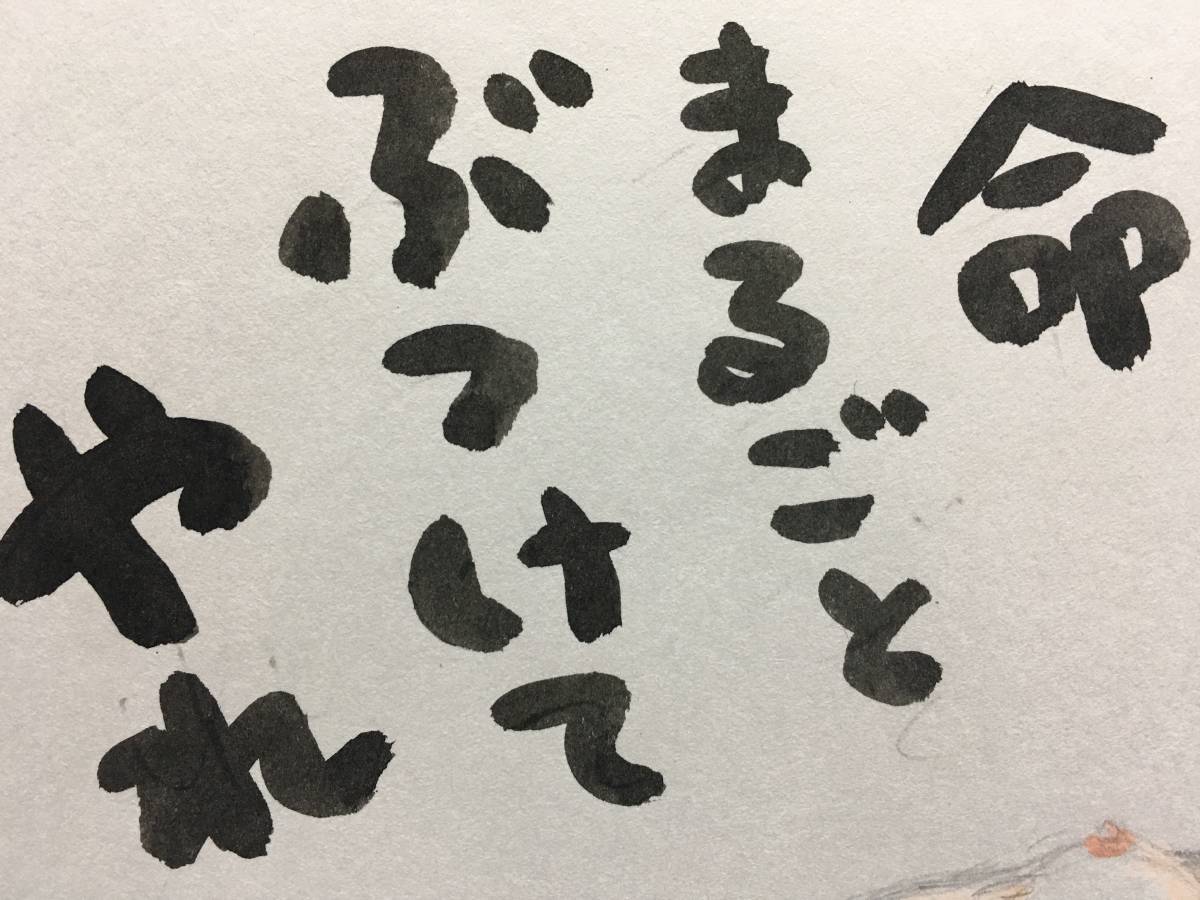 命
まるごと
ぶつけて
やれ